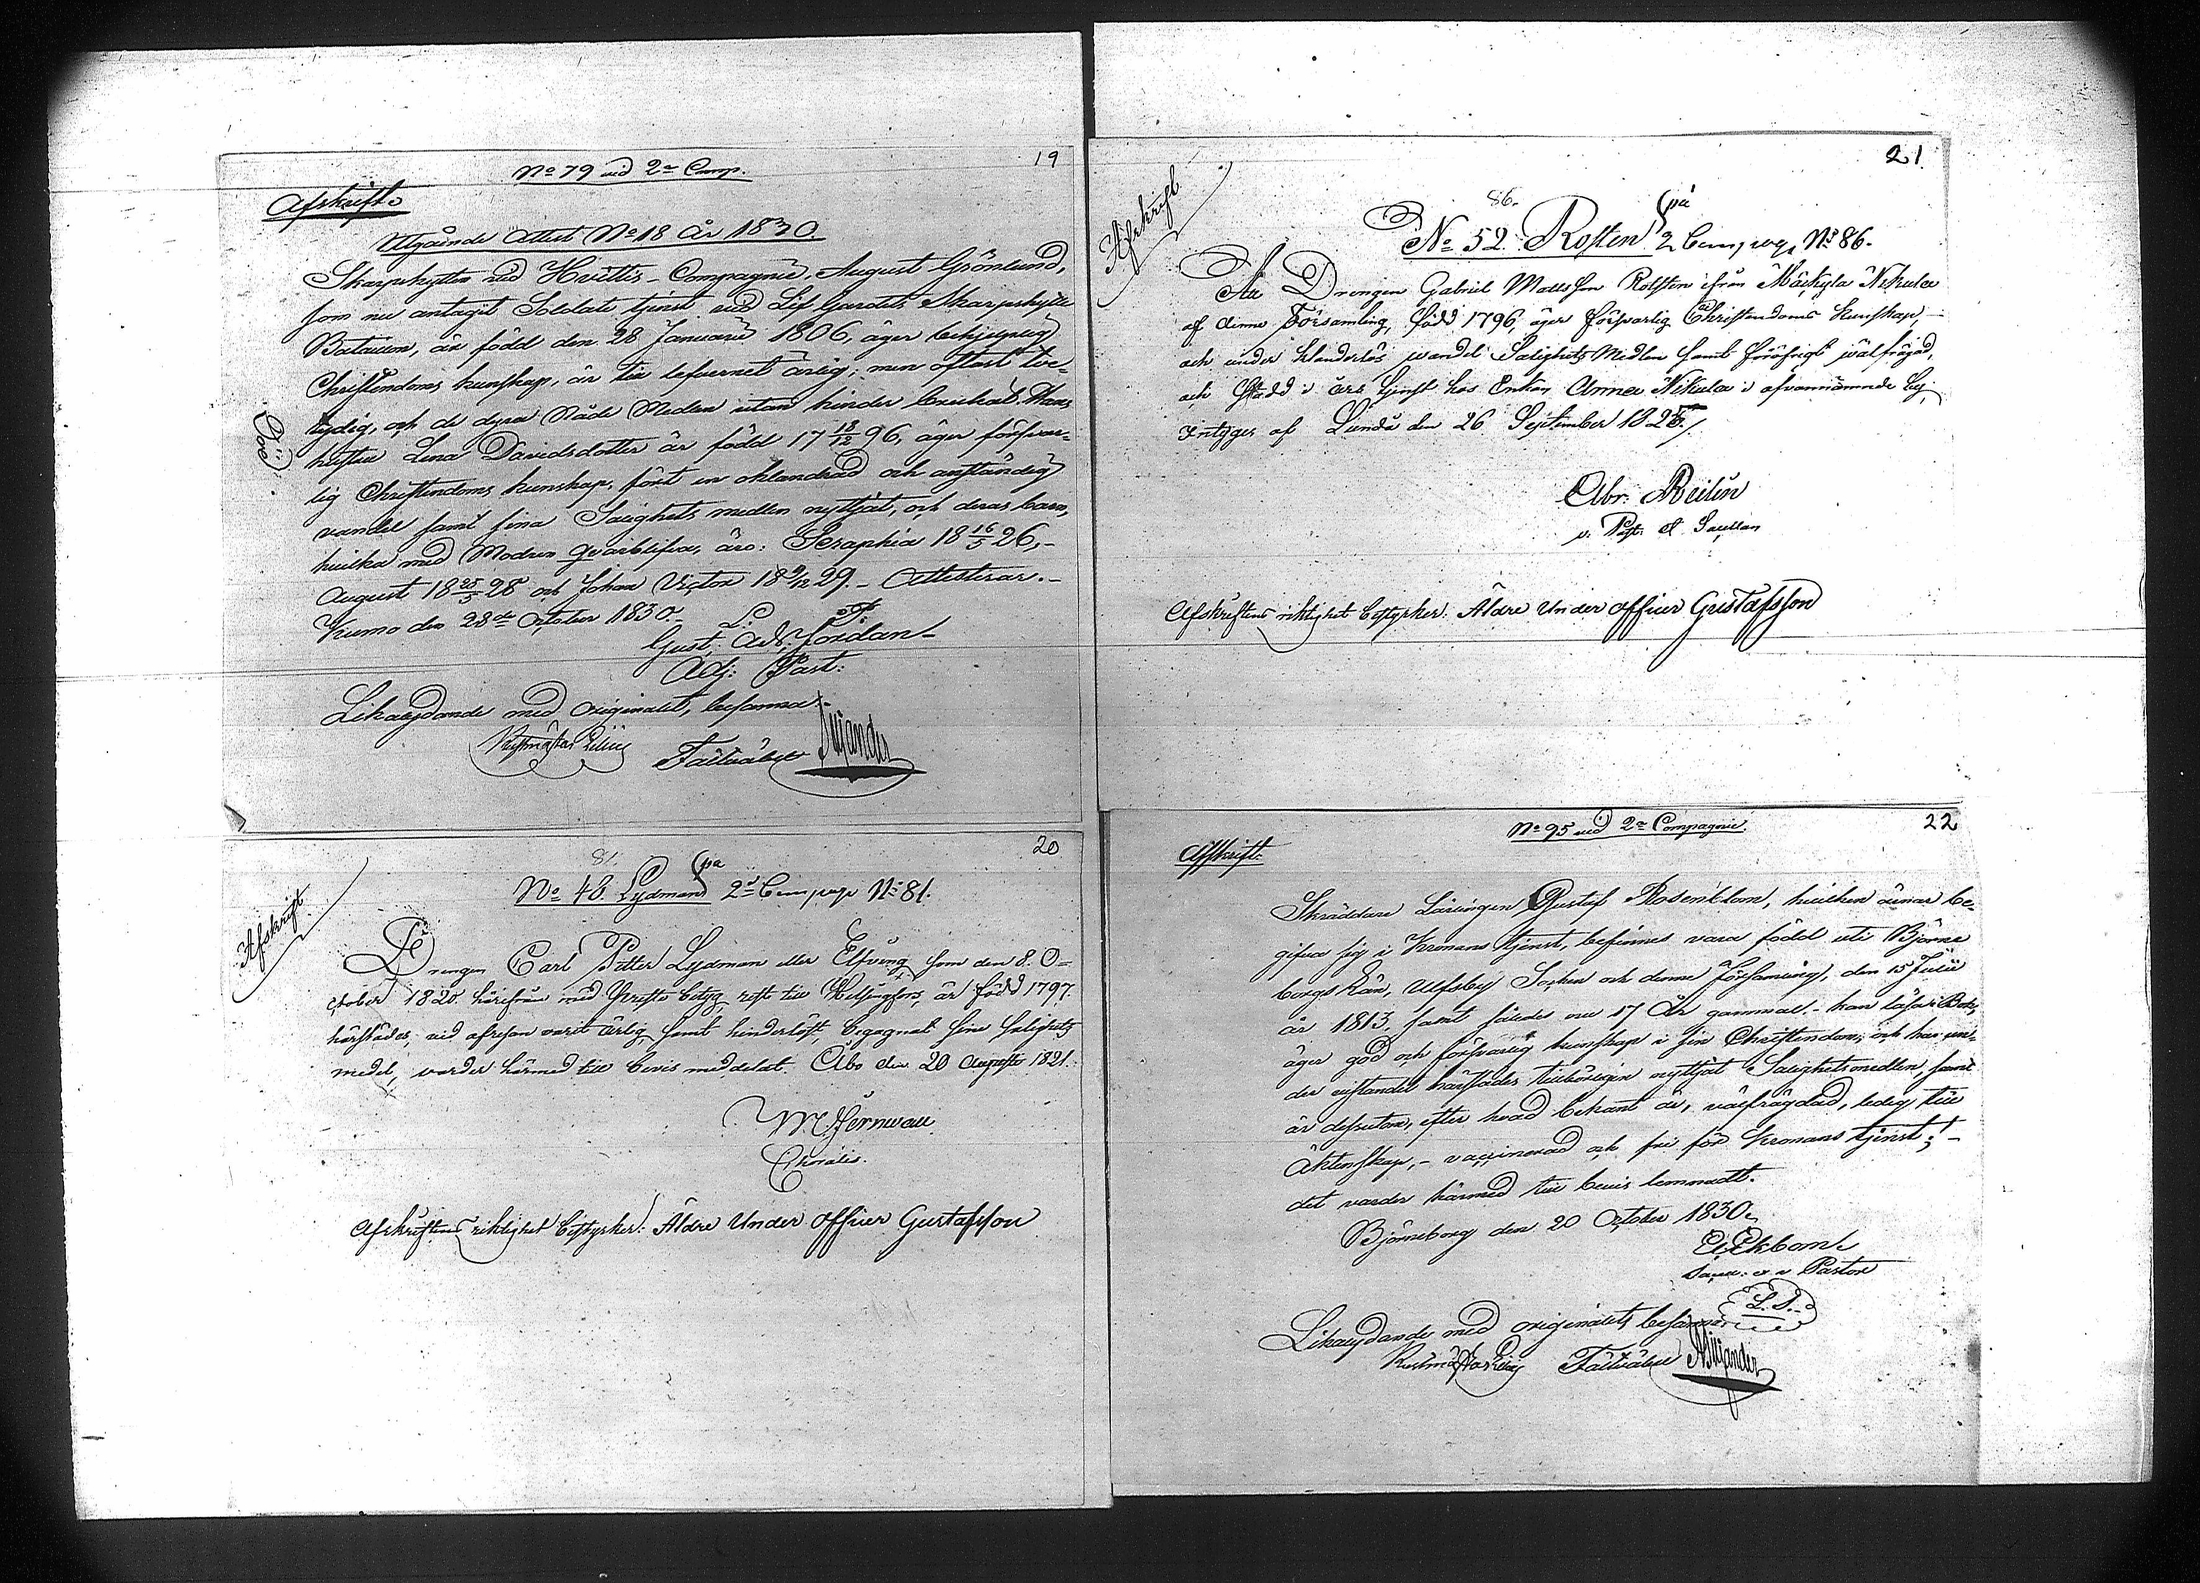 19
No 79 vid 2a Comp.
Afskrift.
Utgående Attest No 18 År 1830.
Skarpskytten vid Hvittis-Compagnie, August Grönlund,
som nu antagit Soldats tjenst vid Lif Gardets Skarpskytte
Bataillon, är född den 28 Januarii 1806, äger behjelpelig
Christendoms kunskap, är till lefvernet ärlig; men oftast tve-
tydig, och de dyra Nåde Medlen utan hinder brukat. Hans
Död
hustru Lena Davidsdotter är född 17 18/12 96, äger försvar-
lig Christendoms kunskap, fört en oklandrad och anständig
vandel samt sina Salighets medlen nyttjat, och deras barn,
hvilka med Modren qvarblifva, äro: Seraphia 18 16/5 26,-
August 18 25/5 28 och Johan Victor 18 9/12 29.- Attesterar.-
Kumo den 28de October 1830.-
L. P.
Gust. Ad. Jordan-
Adj: Past:
Likalydande med Originalet, besannar.-
Rustmästar
Fältväbel Siljander
20
81.
No 48. Lydman på 2a Compagn No 81.
Afskrift
Drengen Carl Petter Lydman eller Elfving som den 8. O-
ctober 1820 härifrån med Preste betyg rest till Helsingfors, är född 1797.
härstädes, vid afresan varit ärlig, samt hinderlöst, begagnat sine salighets
medel, varder härmed till bevis meddelat. Åbo den 20 Augusti 1821.
Afskriftens riktighet bestyrker: Äldre Under Officer Gustafsson
21.
Afskrift
86.
No 52. Rosten på 2 Compagn No 86.
Att Drengen Gabriel Mattsson Rosten ifrån Mäkyla Nikula
af denne Församling, född 1796, äger försvarlig Christendoms Kunskap
och under klanderlös wandel Salighets Medlen samt föröfrigt wälfrägad,
och Städd i års tjenst hos Enkan Anna Nikula i ofvannämnde by,
Intygar af Lundå den 26 September 1825./.
Abr. Reilin
v. Past: & Sacellan
Afskriftens riktighet bestyrker: Äldre Under Officer Gustafsson
22
No 95 vid 2a Compagnie.
Afskrift.
Skräddare Lärlingen Gustaf Rosenblom, hvilken ärnar be-
gifva sig i Kronans tjenst, befinnes vara född uti Björne
borgs Län, Ulfsby Socken och denne Församling, den 15 Julii
år 1813, samt således nu 17 År gammal.- han läser i Bok,
äger god och försvarlig kunskap i sin Christendom; och har un-
der vistandet härstädes tillbörligen nyttjat Salighetsmedlen, samt
är dessutom, efter hvad bekant är, välfrägdad, ledig till
Äktenskap,- vaccinerad och fri för Kronans tjenst;-
det varder härmed till bevis lemnadt.
Björneborg den 20 October 1830.
Ekbom.
Sacell: v Pastor
L. S.
Likalydande med originalet, besannar
Rustmästar
Fältväbel Siljander